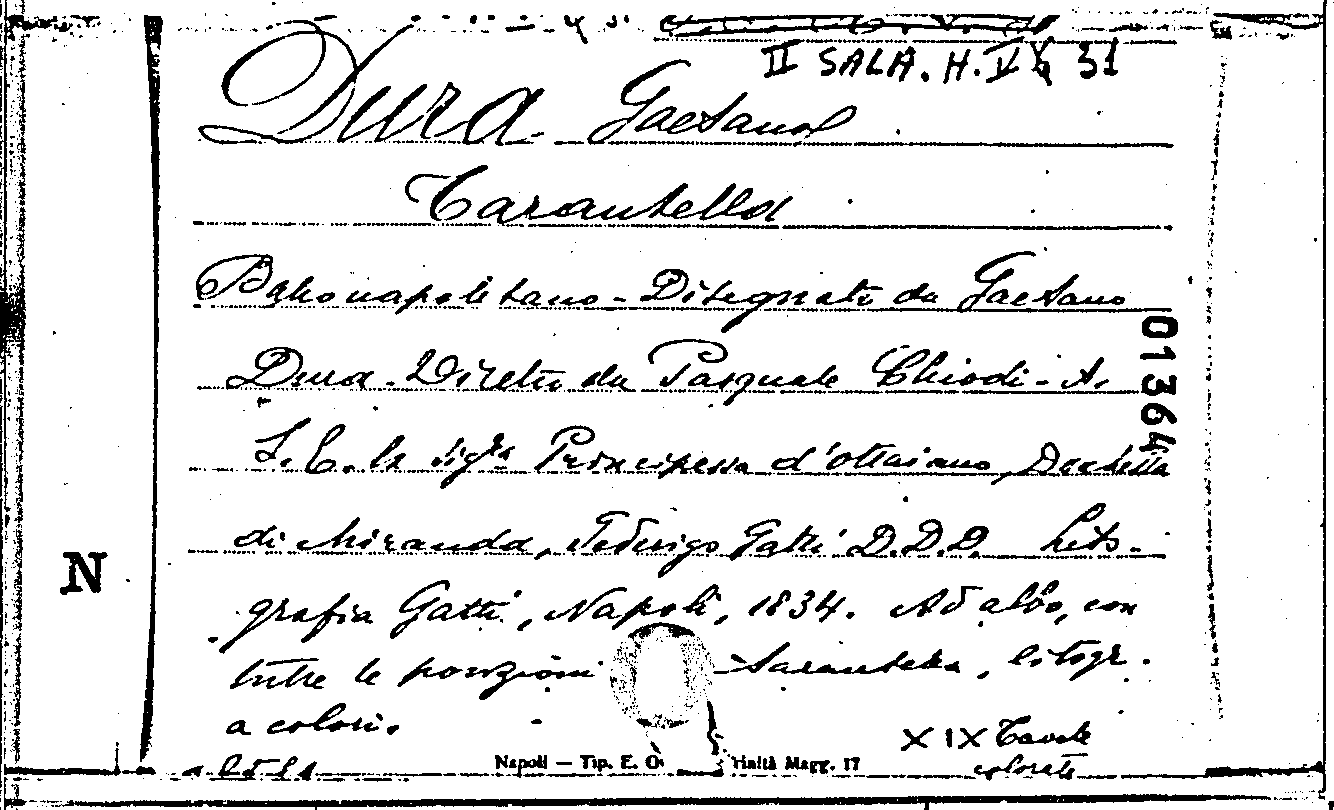 II SALA. H. V 31
Dura Gaetano
Tarantella
Ballo napoletano - Disegnate da Gaetano
Dura - Dirette da Pasquale Chiodi - A.
S. E. la Sig.ra Principessa d'Ottaiano, Duchessa
di Miranda, Federigo Gatti D.D.D. Lito-
grafia Gatti, Napoli, 1834. Ad albo, con
tutte le posizioni tarantella, litogr.
a colori.
XIX Tavole
colorate
Napoli — Tip. E. Trinità Magg. 17
01364
N